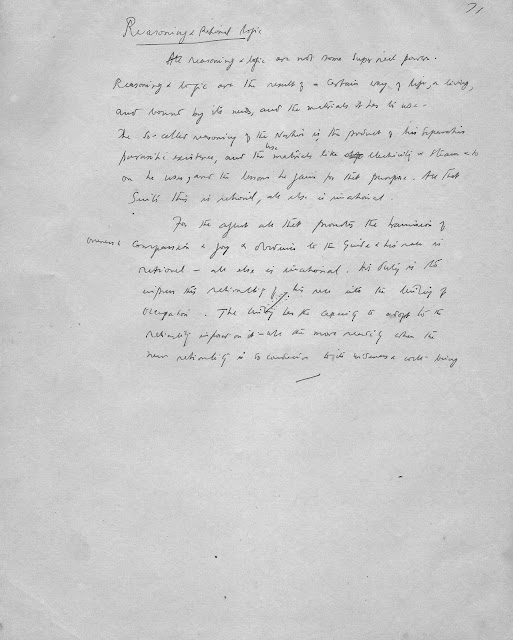 71
Reasoning & Rational Logic
All reasoning & logic are not some supernal power.
Reasoning & logic are the result of a certain way of life, a living,
and bound by its needs, and the materials it has to use.
The so-called reasoning of the is the product of his separative
parasitic existence, and the use materials like electricity & steam etc
on he uses, and the lessons he gains for that purpose. All that
suits this is rational, all else is irrational.
For the agent all that promotes the of
oneness & compassion & joy & obedience to the Guide & his race is
rational – all else is irrational. His duty is to
impress this rationality of his race into the of
occupation. The has the capacity to adapt to the
rationality imposed on it – all the more readily when the
new rationality is so conducive to its & well-being